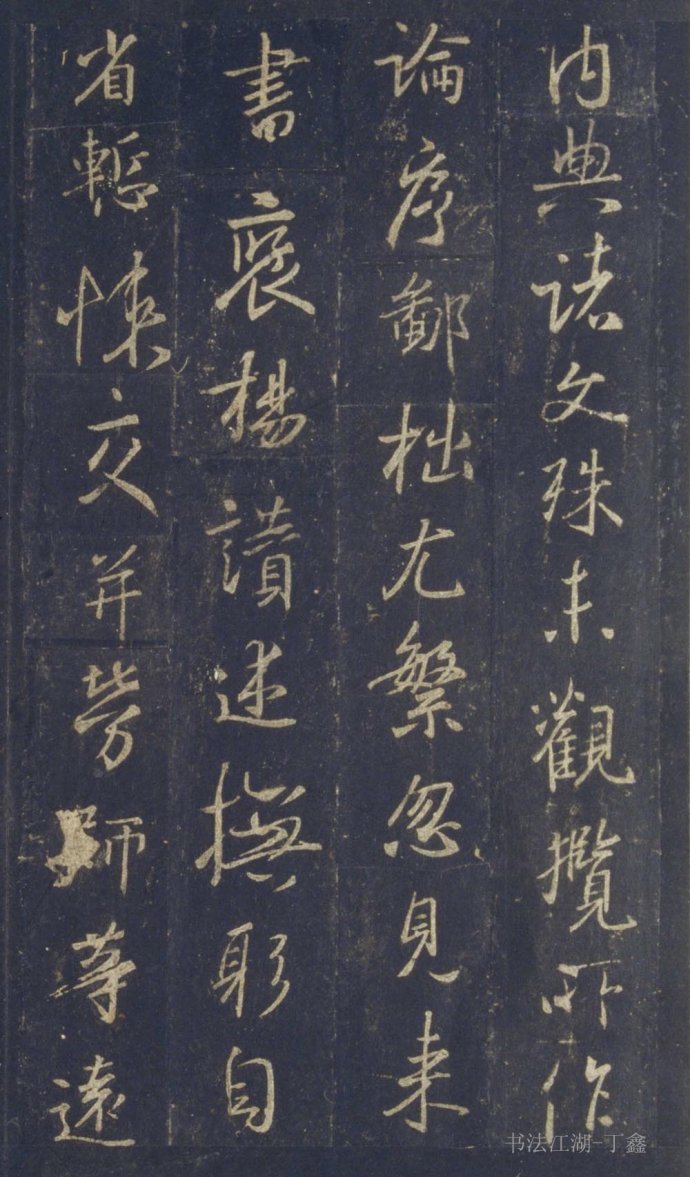 内典諸文殊未觀攬所作
論序鄙拙尤繁忽見来
書褒揚讃述撫躬自
省慙悚交并勞師等遠
书法江湖-丁鑫